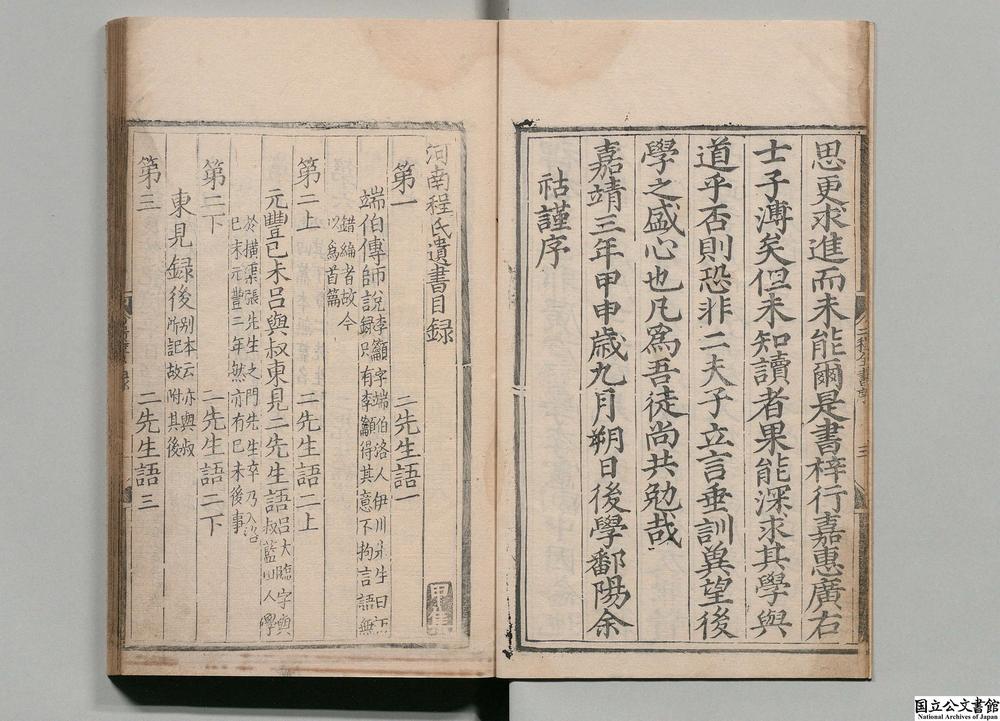 思更求進而未能爾是書梓行嘉惠廣右
士子溥矣但未知讀者果能深求其學與
道乎否則恐非二夫子立言垂訓冀望後
學之盛心也凡為吾徒尚共勉哉
嘉靖三年甲申歲九月朔日後學鄱陽余
祜謹序
三
河南程氏遺書目録
第一 二先生語一
端伯傳師說
李籲字端伯洛人伊川先生曰語
録只有李籲得其意不拘言語無
錯編者故今
以為首篇
第二上 二先生語二上
元豐已未呂與叔東見二先生語
呂大臨字與
叔藍田人學
於橫渠張先生之門先生卒乃入洛
已未元豐二年然亦有已未後事
第二下 二先生語二下
東見録後
別本云亦與叔
所記故附其後
第三 二先生語三
国立公文書館
National Archives of Japan